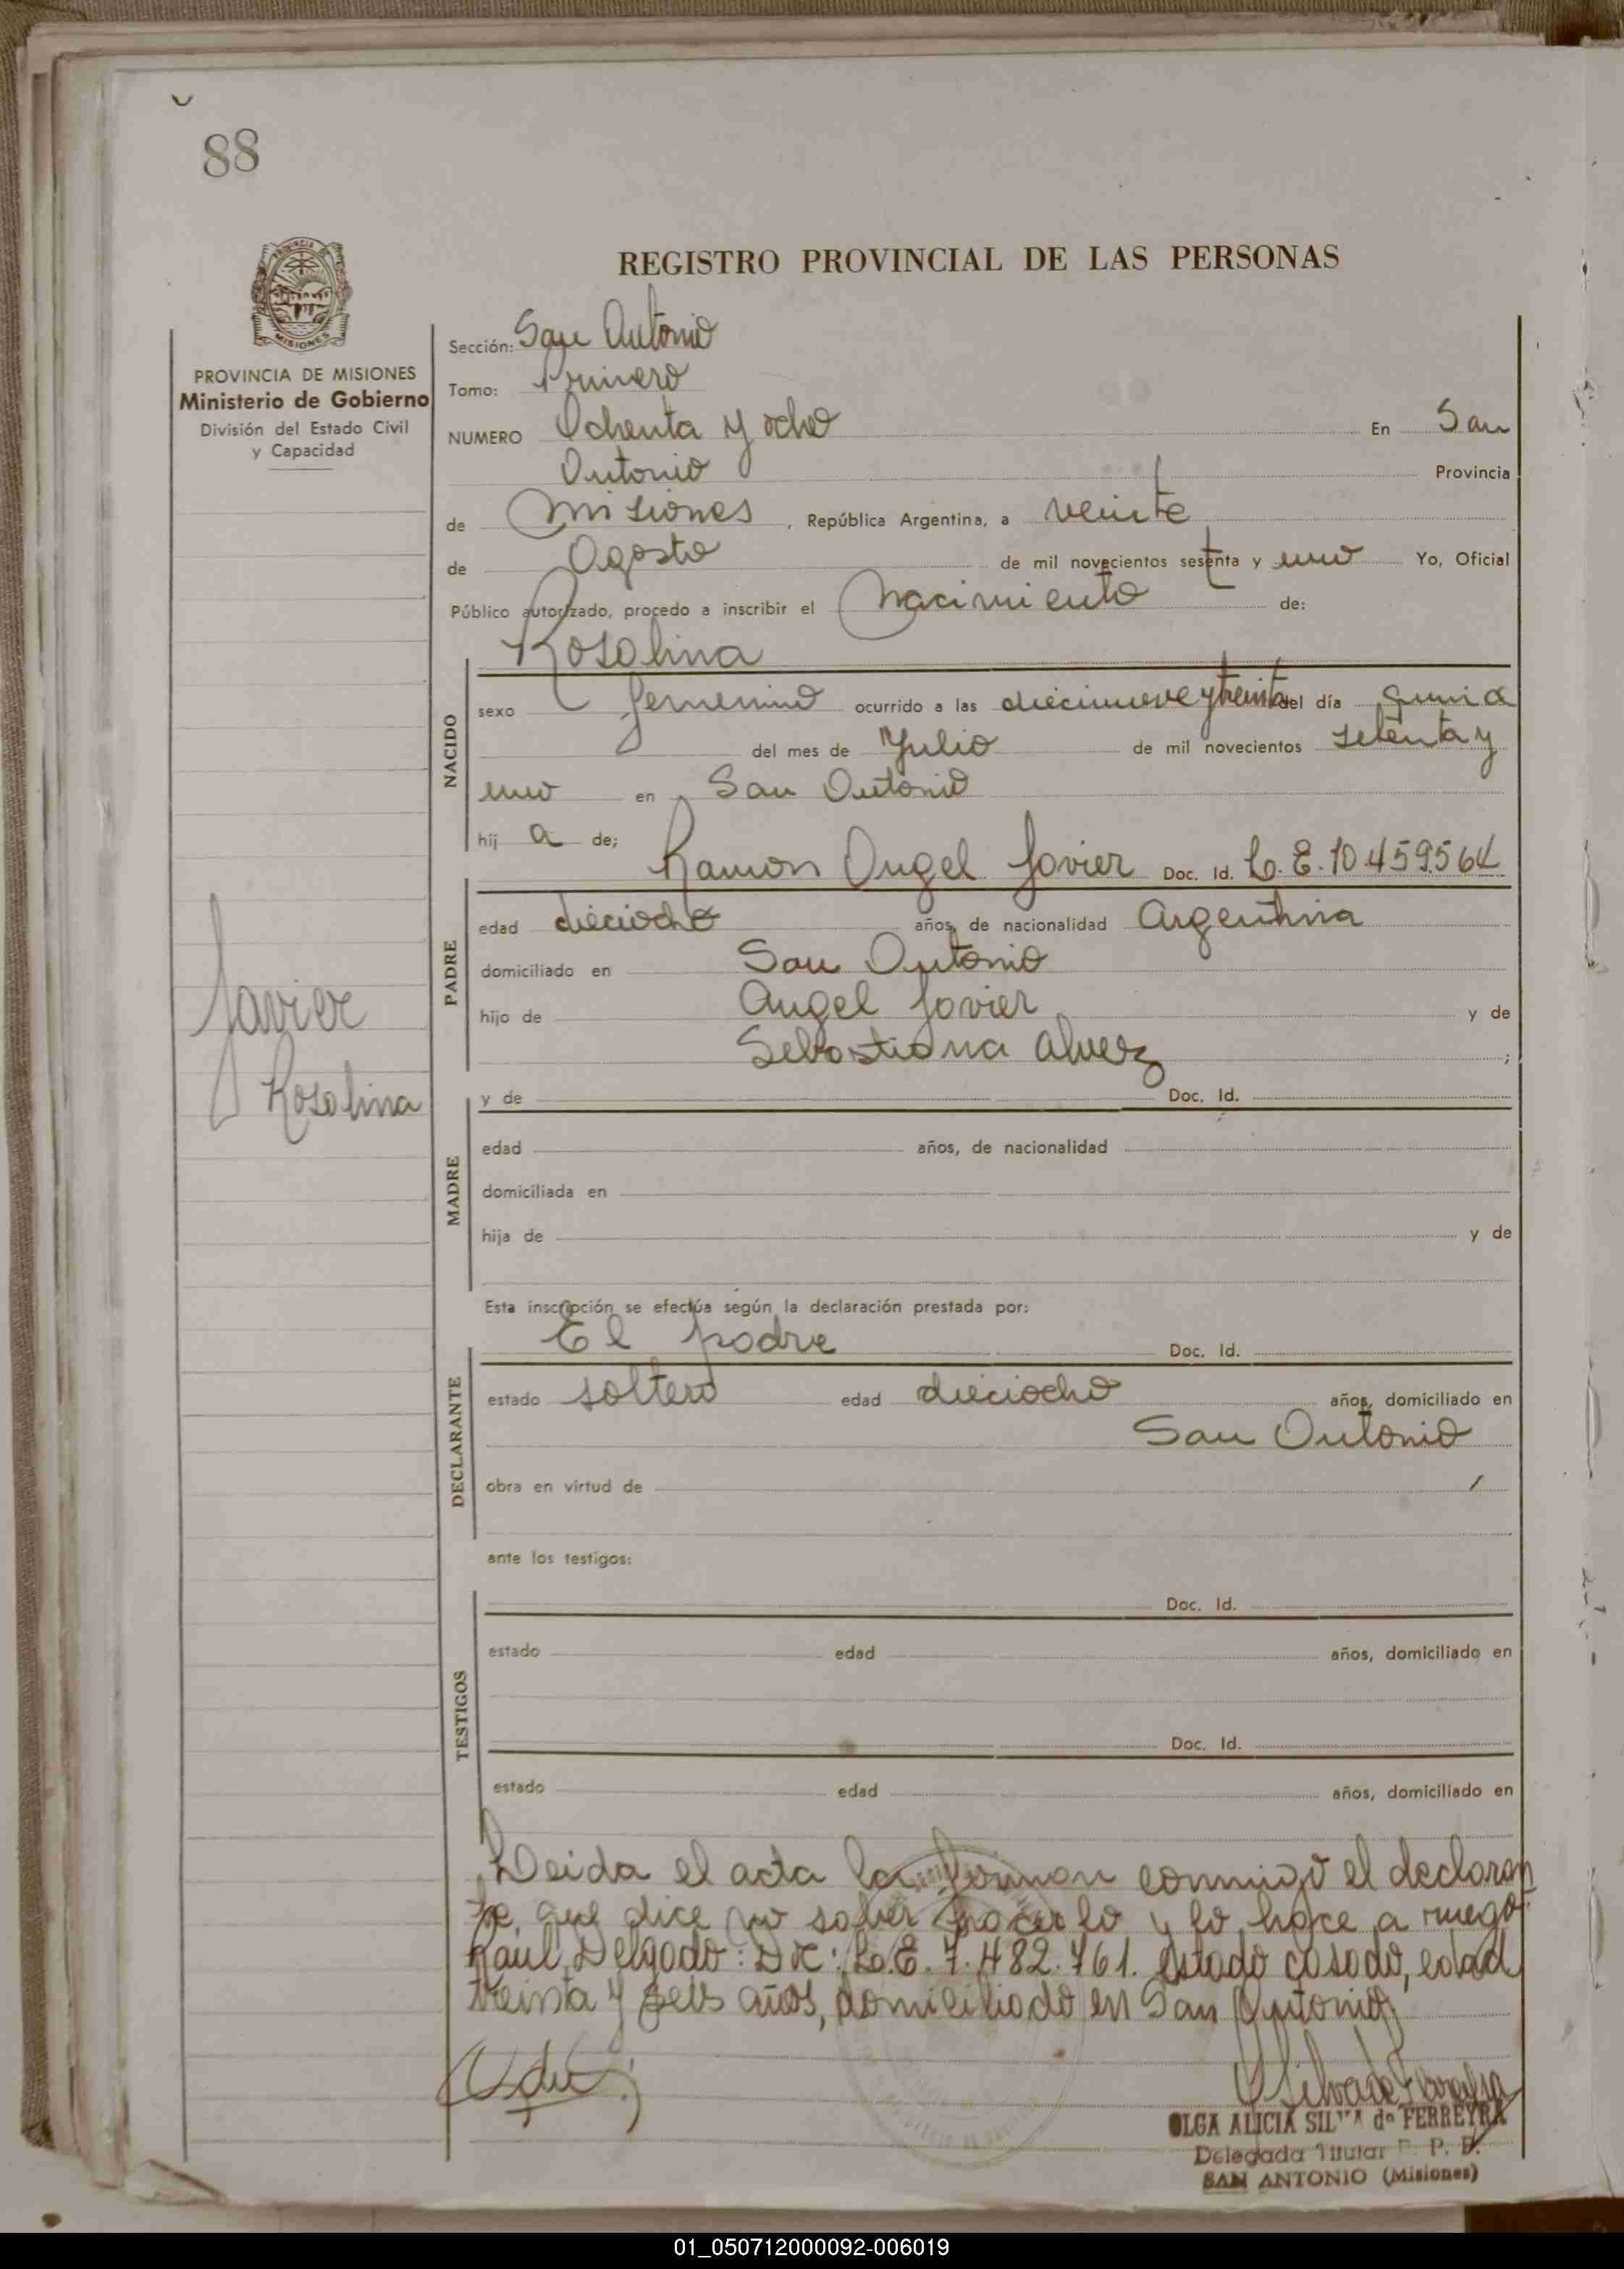 88
PROVINCIA DE
MISIONES
PROVINCIA DE MISIONES
Ministerio de Gobierno
División del Estado Civil
y Capacidad
REGISTRO PROVINCIAL DE LAS PERSONAS
Sección: San Antonio
Tomo: Primero
NUMERO Ochenta y ocho En San
Antonio Provincia
de Misiones, República Argentina, a veinte
de Agosto de mil novecientos sesenta y uno Yo, Oficial
Público autorizado, procedo a inscribir el Nacimiento de:
Rosalina
NACIDO
sexo femenino ocurrido a las diecinueve y treinta del día
del mes de Julio de mil novecientos setenta y
uno en San Antonio
hij a de;
Ramon Angel Javier Doc. Id. L.E. 10.459.564
PADRE
edad dieciocho años, de nacionalidad Argentina
domiciliado en San Antonio
hijo de Angel Javier y de
Sebastiana Alvez ;
Javier
Rosalina
MADRE
y de Doc. Id.
edad años, de nacionalidad
domiciliada en
hija de y de
Esta inscripción se efectúa según la declaración prestada por:
El padre Doc. Id.
DECLARANTE
estado soltero edad dieciocho años, domiciliado en
San Antonio
obra en virtud de
ante los testigos:
TESTIGOS
Doc. Id.
estado edad años, domiciliado en
Doc. Id.
estado edad años, domiciliado en
Leida el acta la firman conmigo el declaran
te, que dice no saber hacerlo y lo hace a ruego
Raúl Delgado: Doc: L.E. 7.482.761. estado casado, edad
treinta y seis años, domiciliado en San Antonio
OLGA ALICIA SILVA de FERREYRA
Delegada Titular R. P. P.
SAN ANTONIO (Misiones)
01_050712000092-006019